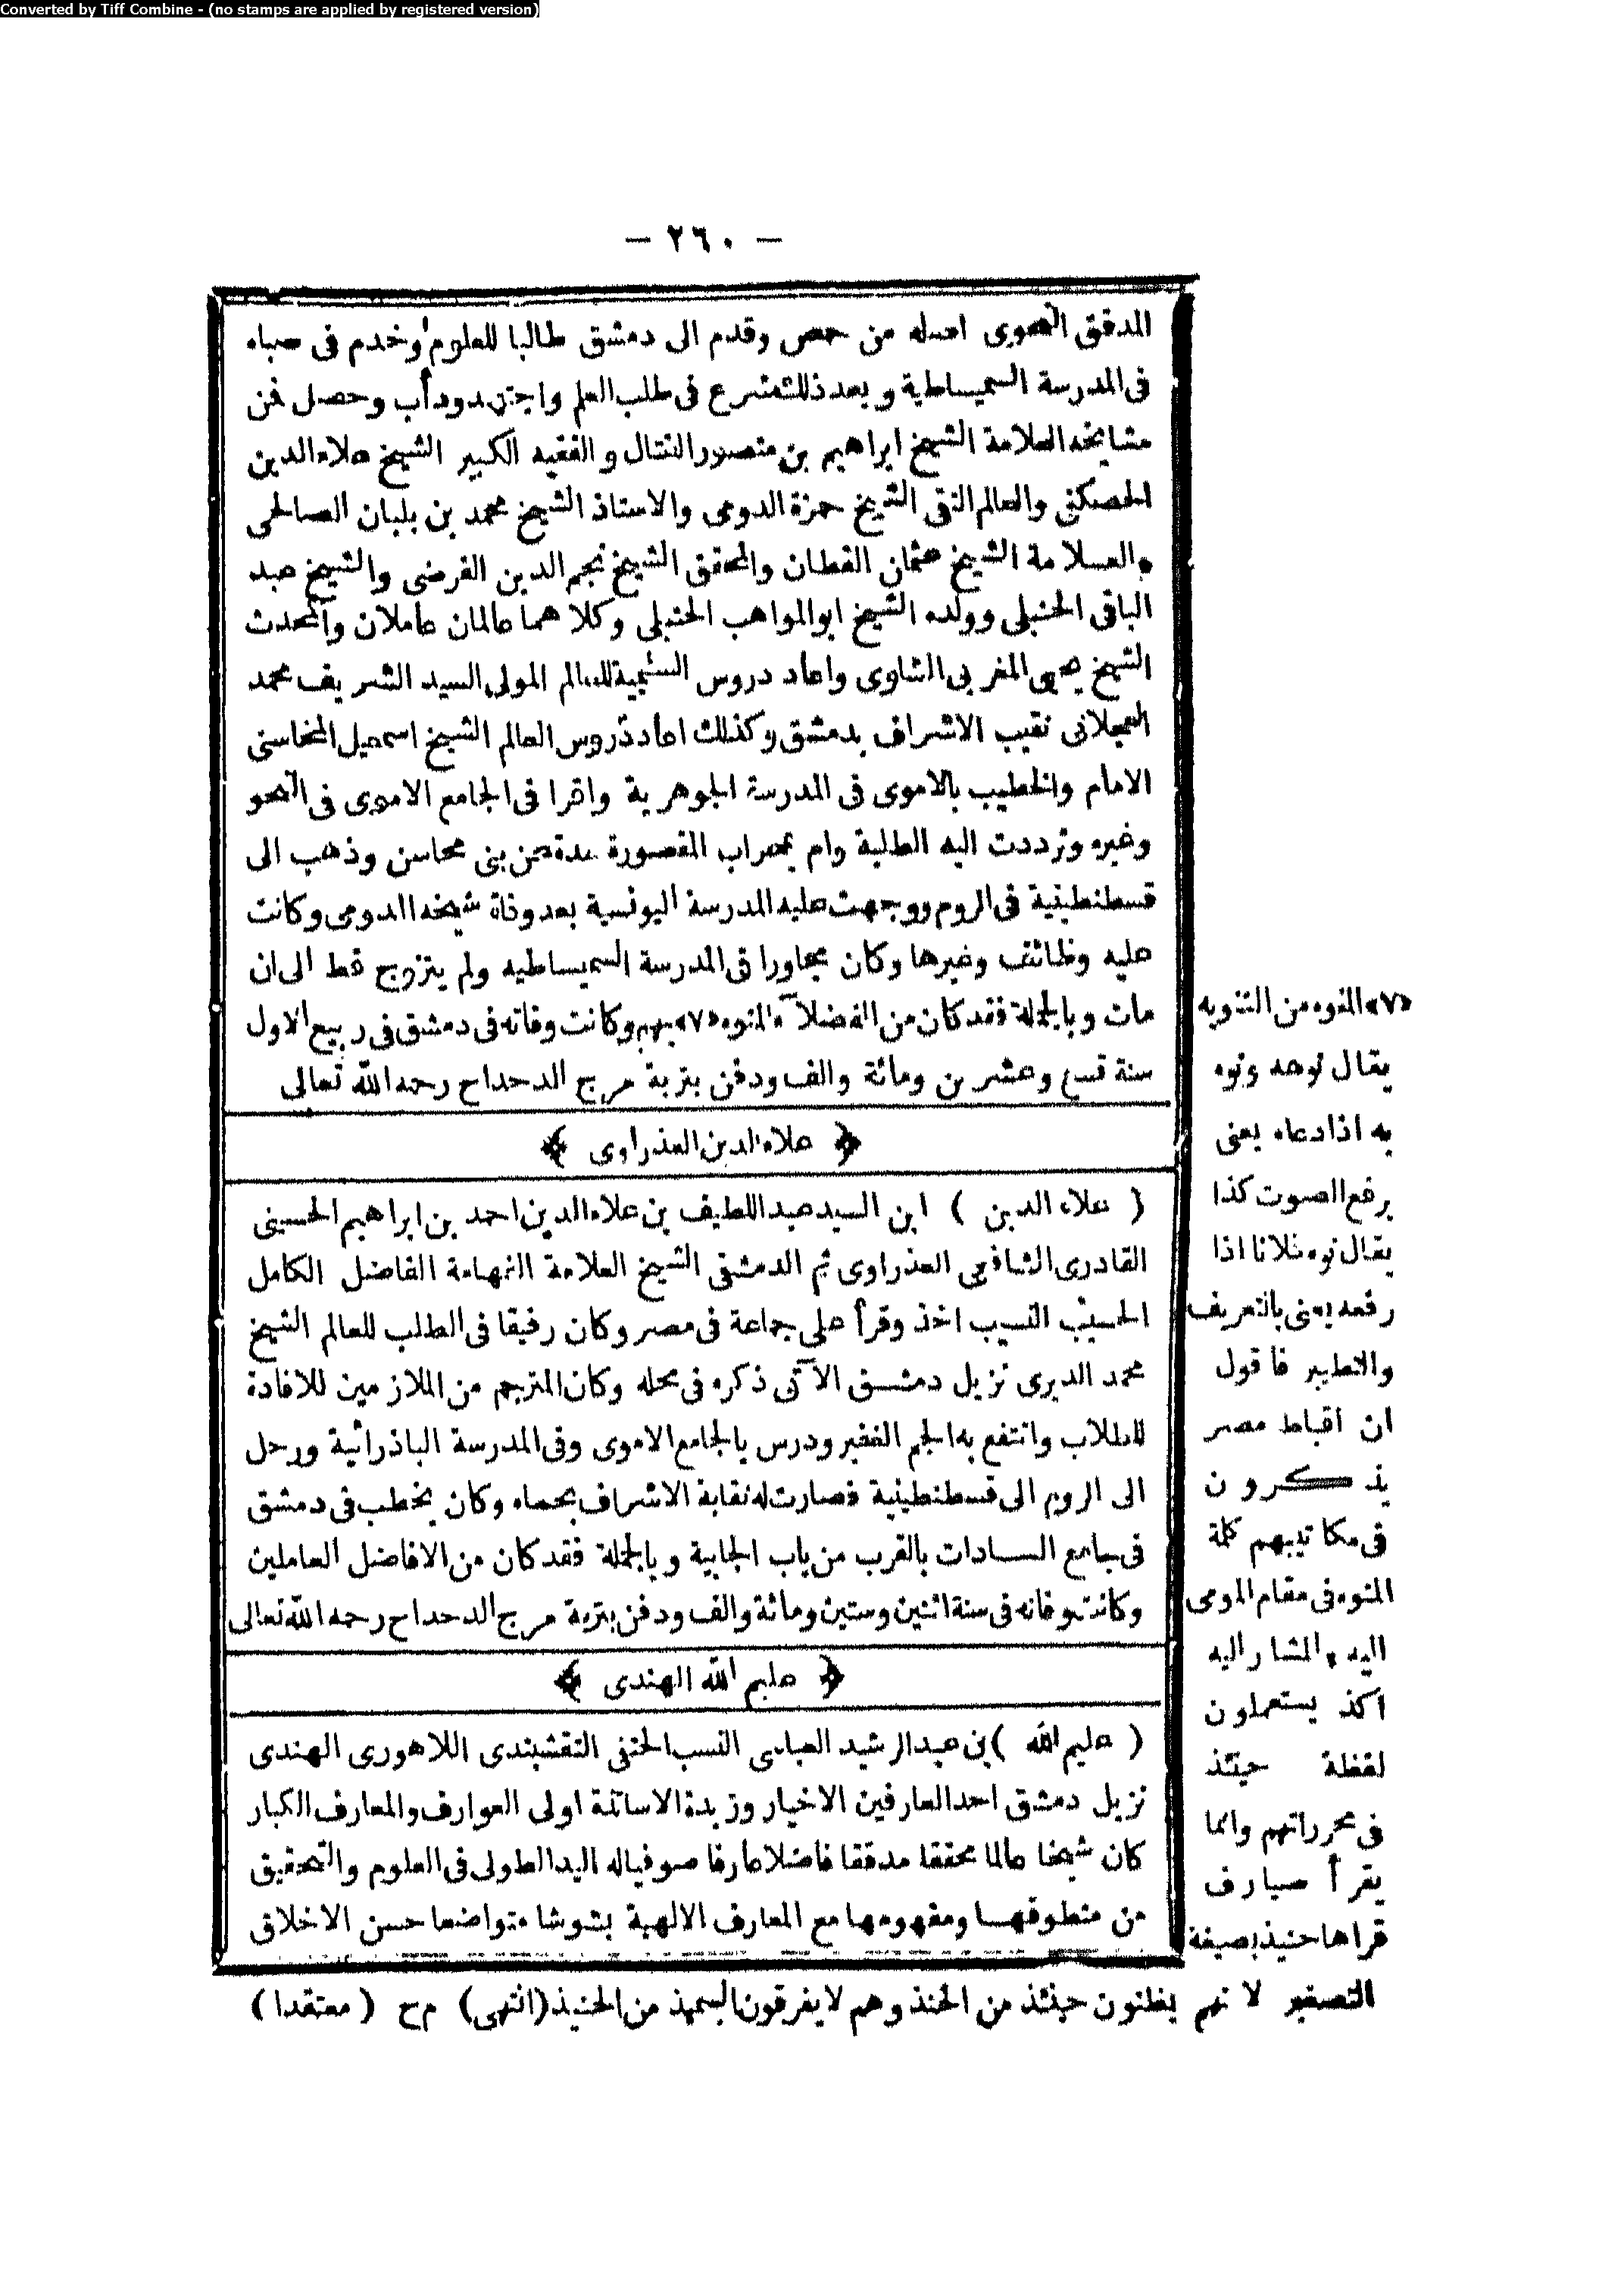 Converted by Tiff Combine - (no stamps are applied by registered version)
— ٢٦٠ —
المدقق النحوى اصله من حمص وقدم الى دمشق طالبا للعلوم وخدم فى صباه
فى المدرسة السميساطية وبعد ذلك شرع فى طلب العلم واجتهد ودأب وحصل فمن
مشايخه العلامة الشيخ ابراهيم بن منصور الفتال والفقيه الكبير الشيخ علاء الدين
الحصكفى والعالم التقى الشيخ حمزة الدومى والاستاذ الشيخ محمد بن بلبان الصالحى
والعلامة الشيخ عثمان القطان والمحقق الشيخ نجم الدين الفرضى والشيخ عبد
الباقى الحنبلى وولده الشيخ ابو المواهب الحنبلى وكلاهما عالمان عاملان والمحدث
الشيخ يحيى المغربى الشاوى واعاد دروس السليمية للعالم المولى السيد الشريف محمد
العجلانى نقيب الاشراف بدمشق وكذلك اعاد دروس العالم الشيخ اسمعيل المحاسنى
الامام والخطيب بالاموى فى المدرسة الجوهرية واقرا فى الجامع الاموى فى النحو
وغيره وترددت اليه الطلبة وام بمحراب المقصورة مدة عن بنى محاسن وذهب الى
قسطنطينية فى الروم ووجهت عليه المدرسة اليونسية بعد وفاة شيخه الدومى وكانت
عليه وظائف وغيرها وكان مجاورا فى المدرسة السميساطيه ولم يتزوج قط الى ان
مات وبالجملة فقد كان من الفضلاء المنوه «٧» بهم وكانت وفاته فى دمشق فى ربيع الاول
سنة تسع وعشرين ومائة والف ودفن بتربة مرج الدحداح رحمه الله تعالى
﴿ علاء الدين العذراوى ﴾
( علاء الدين ) ابن السيد عبد اللطيف بن علاء الدين احمد بن ابراهيم الحسينى
القادرى الشافعى العذراوى ثم الدمشقى الشيخ العلامة الفهامة الفاضل الكامل
الحسيب النسيب اخذ وقرأ على جماعة فى مصر وكان رفيقا فى الطلب للعالم الشيخ
محمد الديرى نزيل دمشق الآتى ذكره فى محله وكان المترجم من الملازمين للافادة
للطلاب وانتفع به الجم الغفير ودرس بالجامع الاموى وفى المدرسة الباذرائية ورحل
الى الروم الى قسطنطينية فصارت له نقابة الاشراف بحماه وكان يخطب فى دمشق
فى جامع السادات بالقرب من باب الجابية وبالجملة فقد كان من الافاضل العاملين
وكانت وفاته فى سنة اثنين وستين ومائة والف ودفن بتربة مرج الدحداح رحمه الله تعالى
﴿ عليم الله الهندى ﴾
( عليم الله ) بن عبد الرشيد العباسى النسب الحنفى النقشبندى اللاهورى الهندى
نزيل دمشق احد العارفين الاخيار وزبدة الاساتذة اولى العوارف والمعارف الكبار
كان شيخا عالما محققا مدققا فاضلا عارفا صوفيا له اليد الطولى فى العلوم والتحقيق
من منطوقها ومفهومها مع المعارف الالهية بشوشا متواضعا حسن الاخلاق
«٧» المنوه من التنويه
يقال نوهه ونوه
به اذا دعاه يعنى
برفع الصوت كذا
يقال نوه فلانا اذا
رفعه يعنى بالتعريف
والتطيير فاقول
ان اقباط مصر
يذكرون
فى مكاتيبهم كلمة
المنوه فى مقام المومى
اليه والمشار اليه
اكذ يستعملون
لفظة حينئذ
فى محرراتهم وانما
يقرأ صيارف
قراها حنيذ بصيغة
التصغير لانهم يظنون حينئذ من الحنذ وهم لا يفرقون السميذ من الحنيذ (انتهى) م ح ( معتقدا )